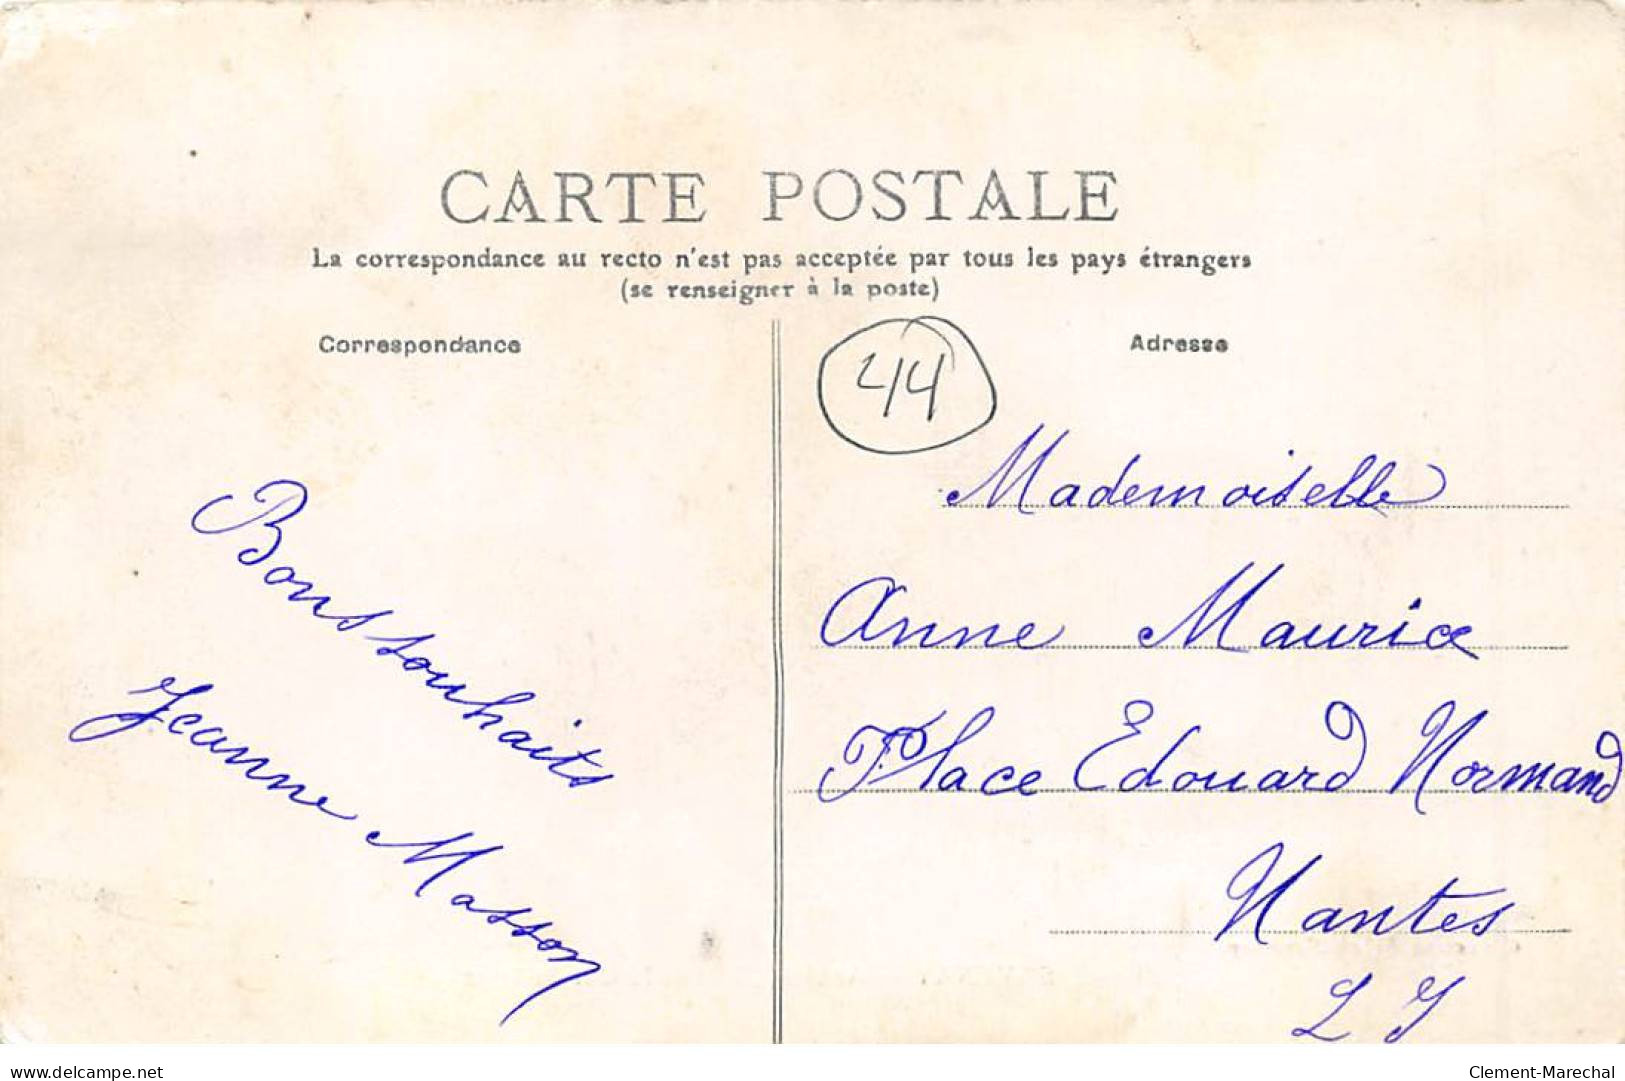 CARTE POSTALE
La correspondance au recto n'est pas acceptée par tous les pays étrangers
(se renseigner à la poste)
Correspondance
Adresse
44
Bons souhaits
Jeanne Masson
Mademoiselle
Anne Maurice
Place Edouard Normand
Nantes
L I
delcampe.net
Clement-Marechal